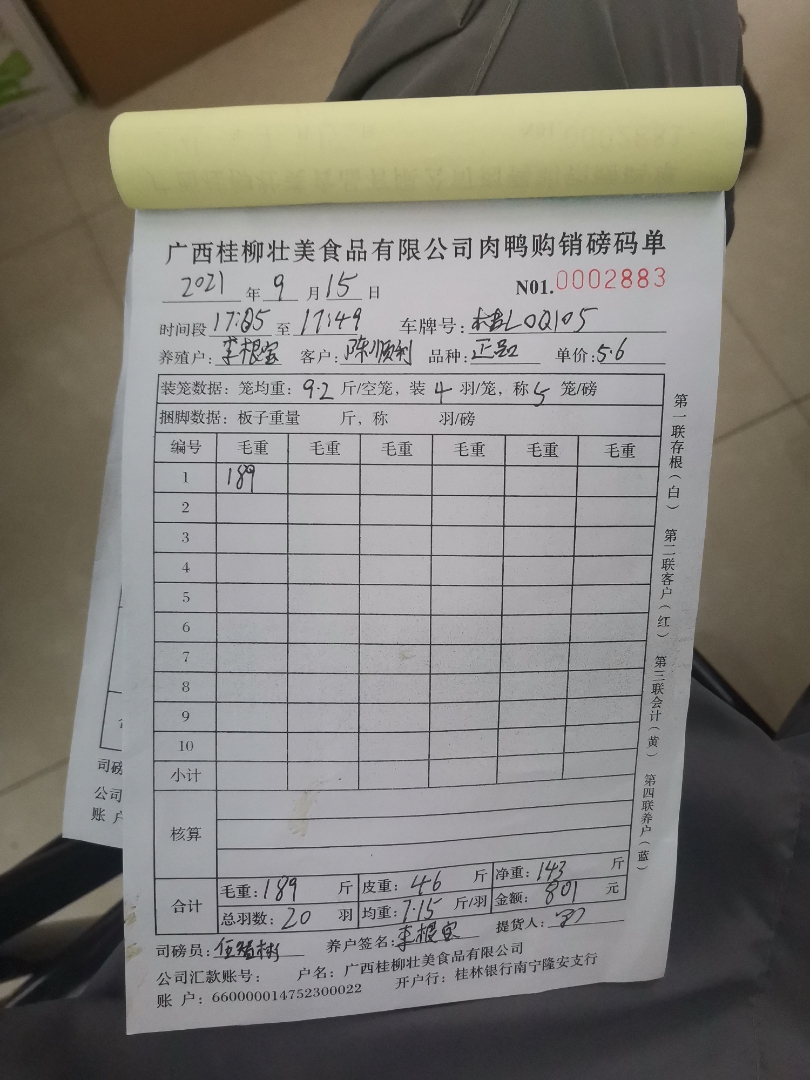 广西桂柳壮美食品有限公司肉鸭购销磅码单
2021 年 9 月 15 日 N01.0002883
时间段 17:05 至 17:49 车牌号: L0Q105
养殖户: 李根宝 客户: 陈顺利 品种: 正品 单价: 5.6
装笼数据: 笼均重: 9.2 斤/空笼, 装 4 羽/笼, 称 5 笼/磅
捆脚数据: 板子重量 斤, 称 羽/磅
编号 毛重 毛重 毛重 毛重 毛重 毛重
1 189
2
3
4
5
6
7
8
9
10
小计
核算
合计 毛重: 189 斤 皮重: 46 斤 净重: 143 斤
总羽数: 20 羽 均重: 7.15 斤/羽 金额: 801 元
司磅员: 养户签名: 李根宝 提货人:
公司汇款账号: 户名: 广西桂柳壮美食品有限公司
账 户: 660000014752300022 开户行: 桂林银行南宁隆安支行
第一联存根(白) 第二联客户(红) 第三联会计(黄) 第四联养户(蓝)
司磅
公司
账 户